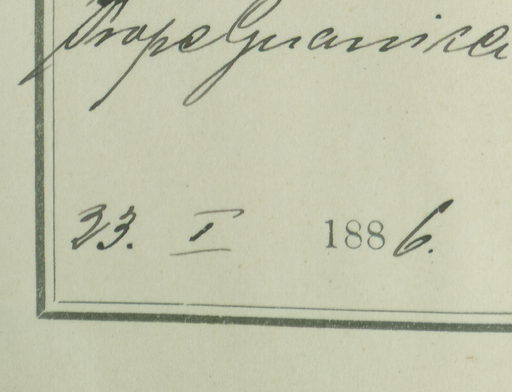 Prope Guanica
23. I 1886.